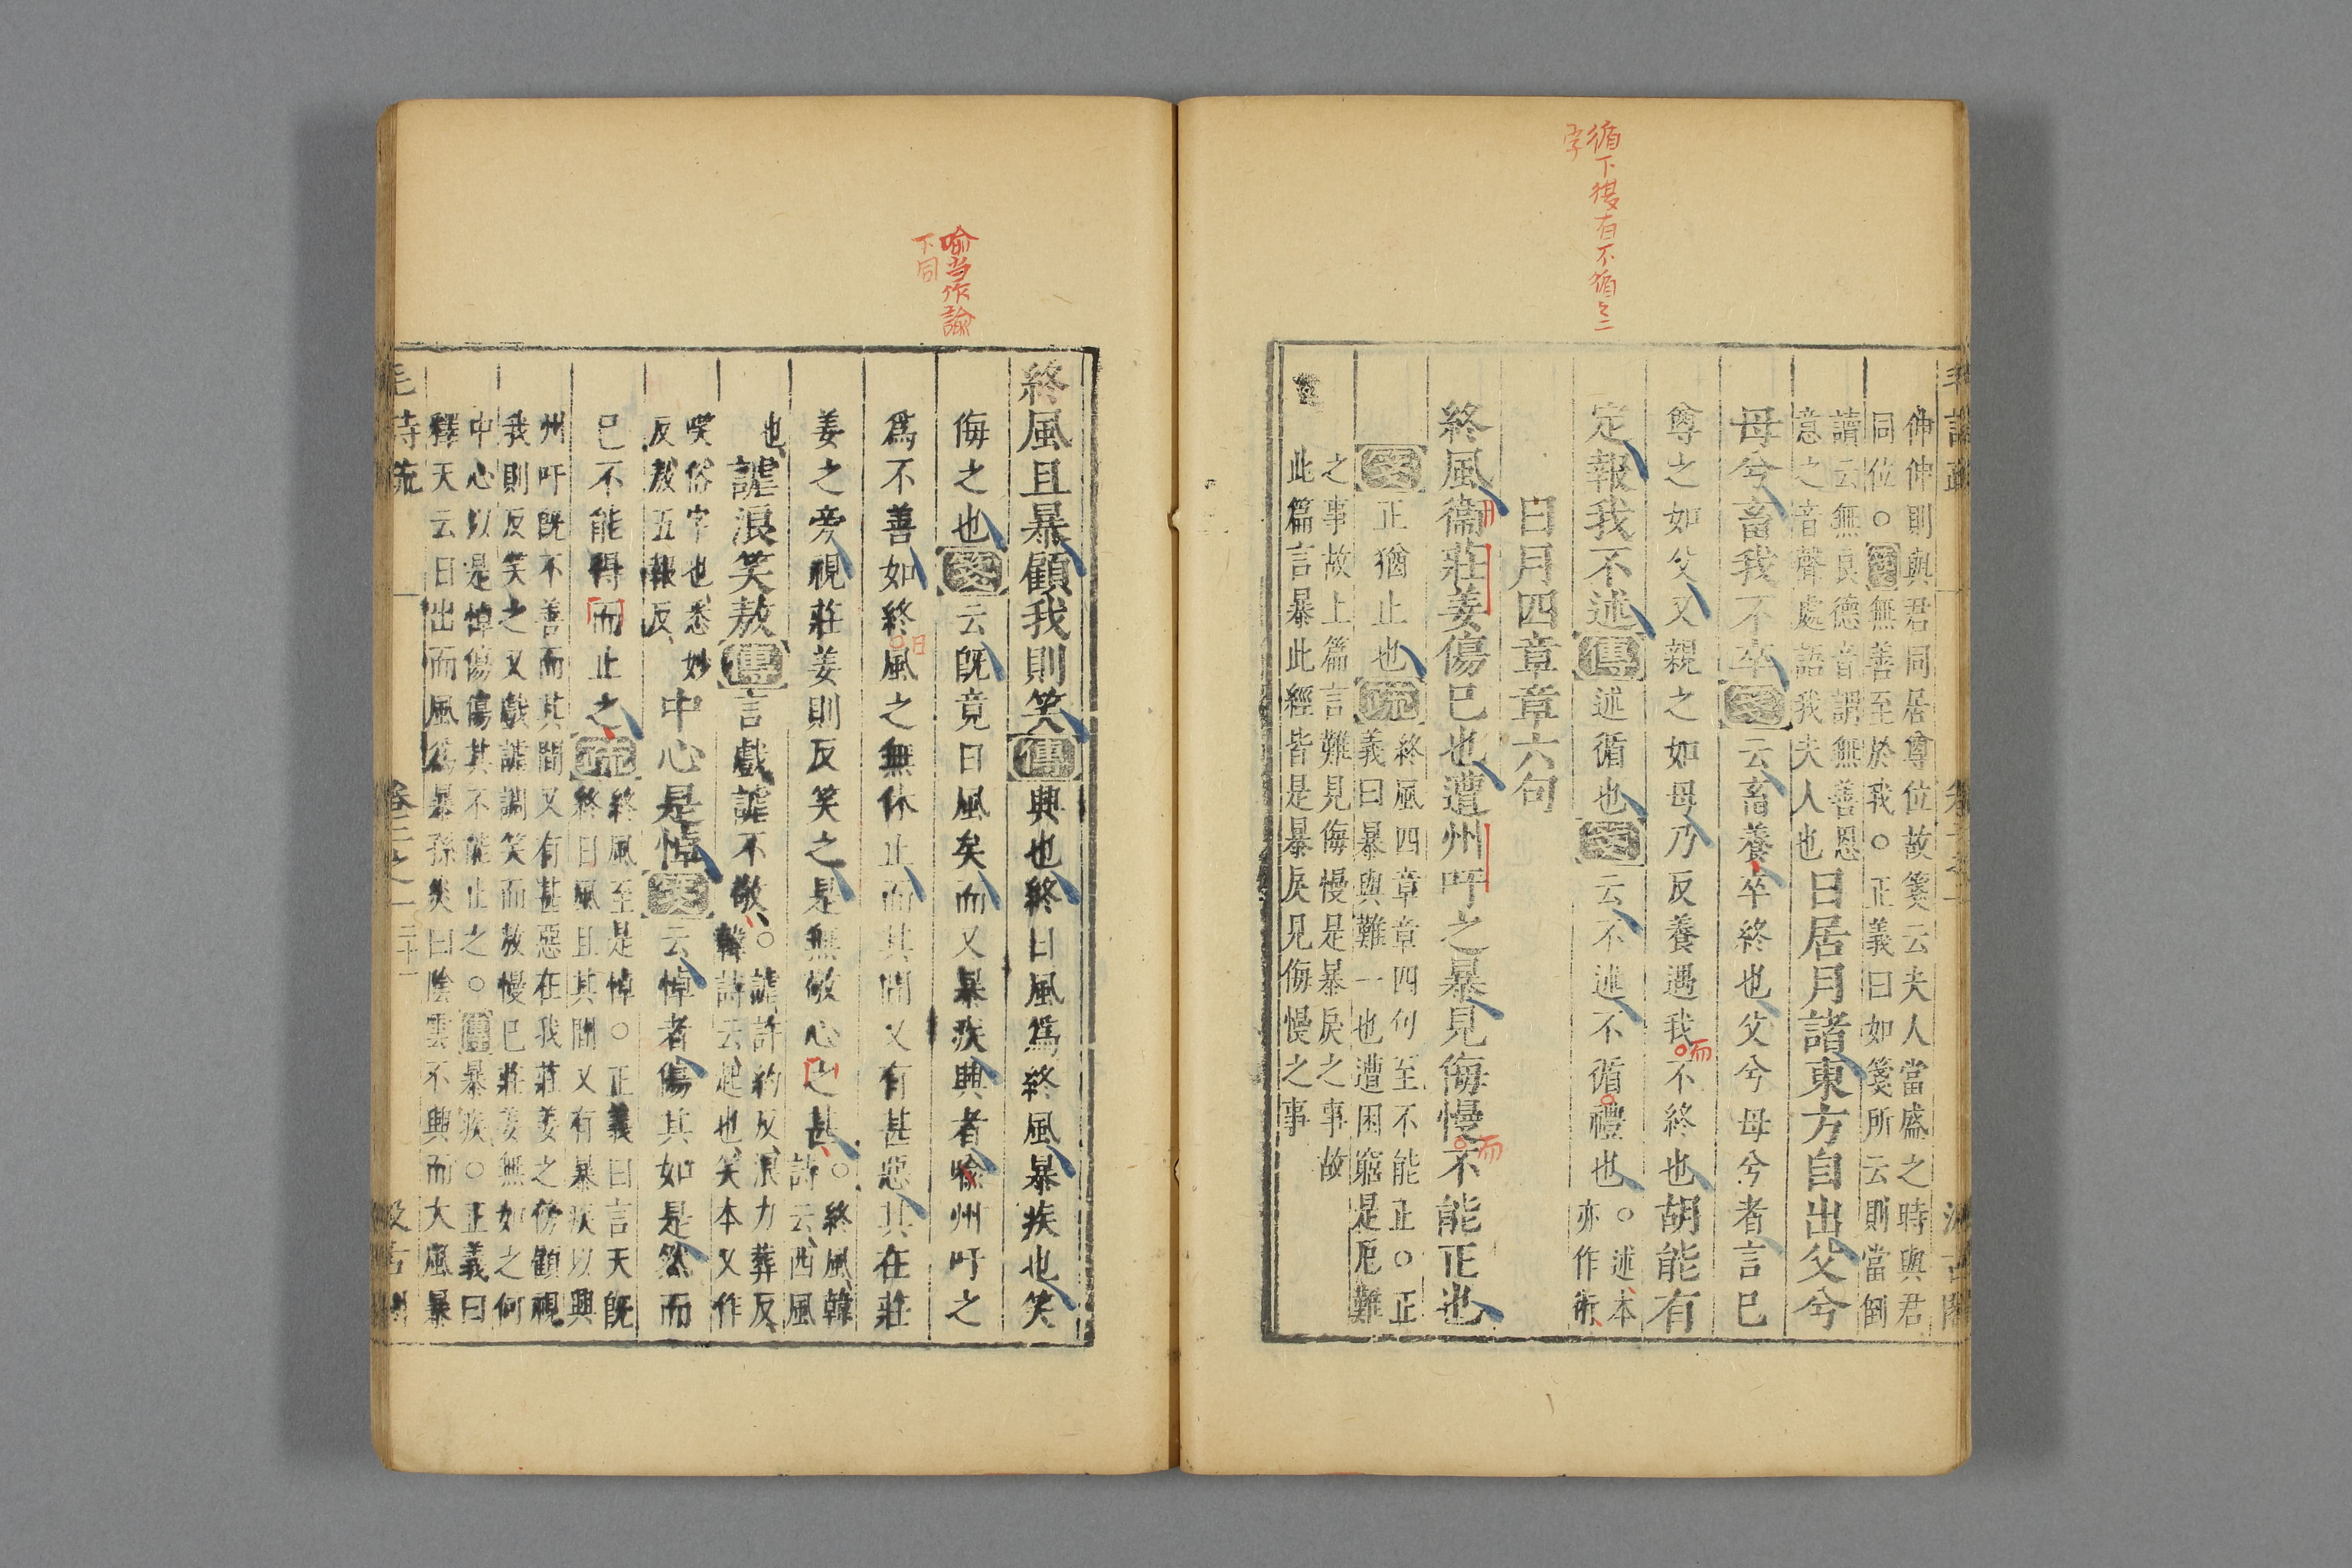 循下復有不循之二
字
伸伸則與君同居尊位故箋云夫人當盛之時與君
同位○傳無善至於我○正義曰如箋所云則當倒
讀云無良德音謂無善恩
意之音聲處語我夫人也
日居月諸東方自出父兮
母兮畜我不卒箋云畜養卒終也父兮母兮者言己
尊之如父又親之如母乃反養遇我不終也胡能有
而
定報我不述傳述循也箋云不述不循禮也
○述本
亦作術
日月四章章六句
終風衞莊姜傷己也遭州吁之暴見侮慢不能正也
而
箋正猶止也疏
終風四章章四句至不能正○正
義曰暴與難一也遭困窮是厄難
之事故上篇言難見侮慢是暴戾之事故
此篇言暴此經皆是暴戾見侮慢之事
喻当作諭
下同
終風且暴顧我則笑傳興也終日風爲終風暴疾也笑
侮之也箋云旣竟日風矣而又暴疾興者喻州吁之
爲不善如終風之無休止而其間又有甚惡其在莊
日
姜之旁視莊姜則反笑之是無敬心之甚
○終風韓
詩云西風
也
謔浪笑敖傳言戲謔不敬
○謔許約反浪力葬反
韓詩云起也笑本又作
笑俗字也悉妙
反敖五報反
中心是悼箋云悼者傷其如是然而
已不能得而止之疏
終風至是悼○正義曰言天旣
終日風且其間又有暴疾以興
州吁旣不善而其間又有甚惡在我莊姜之傍顧視
我則反笑之又戲謔調笑而敖慢己莊姜無如之何
中心以是悼傷傷其不能止之○傳暴疾○正義曰
釋天云日出而風爲暴孫炎曰陰雲不興而大風暴
毛詩疏
卷二之一
二十一